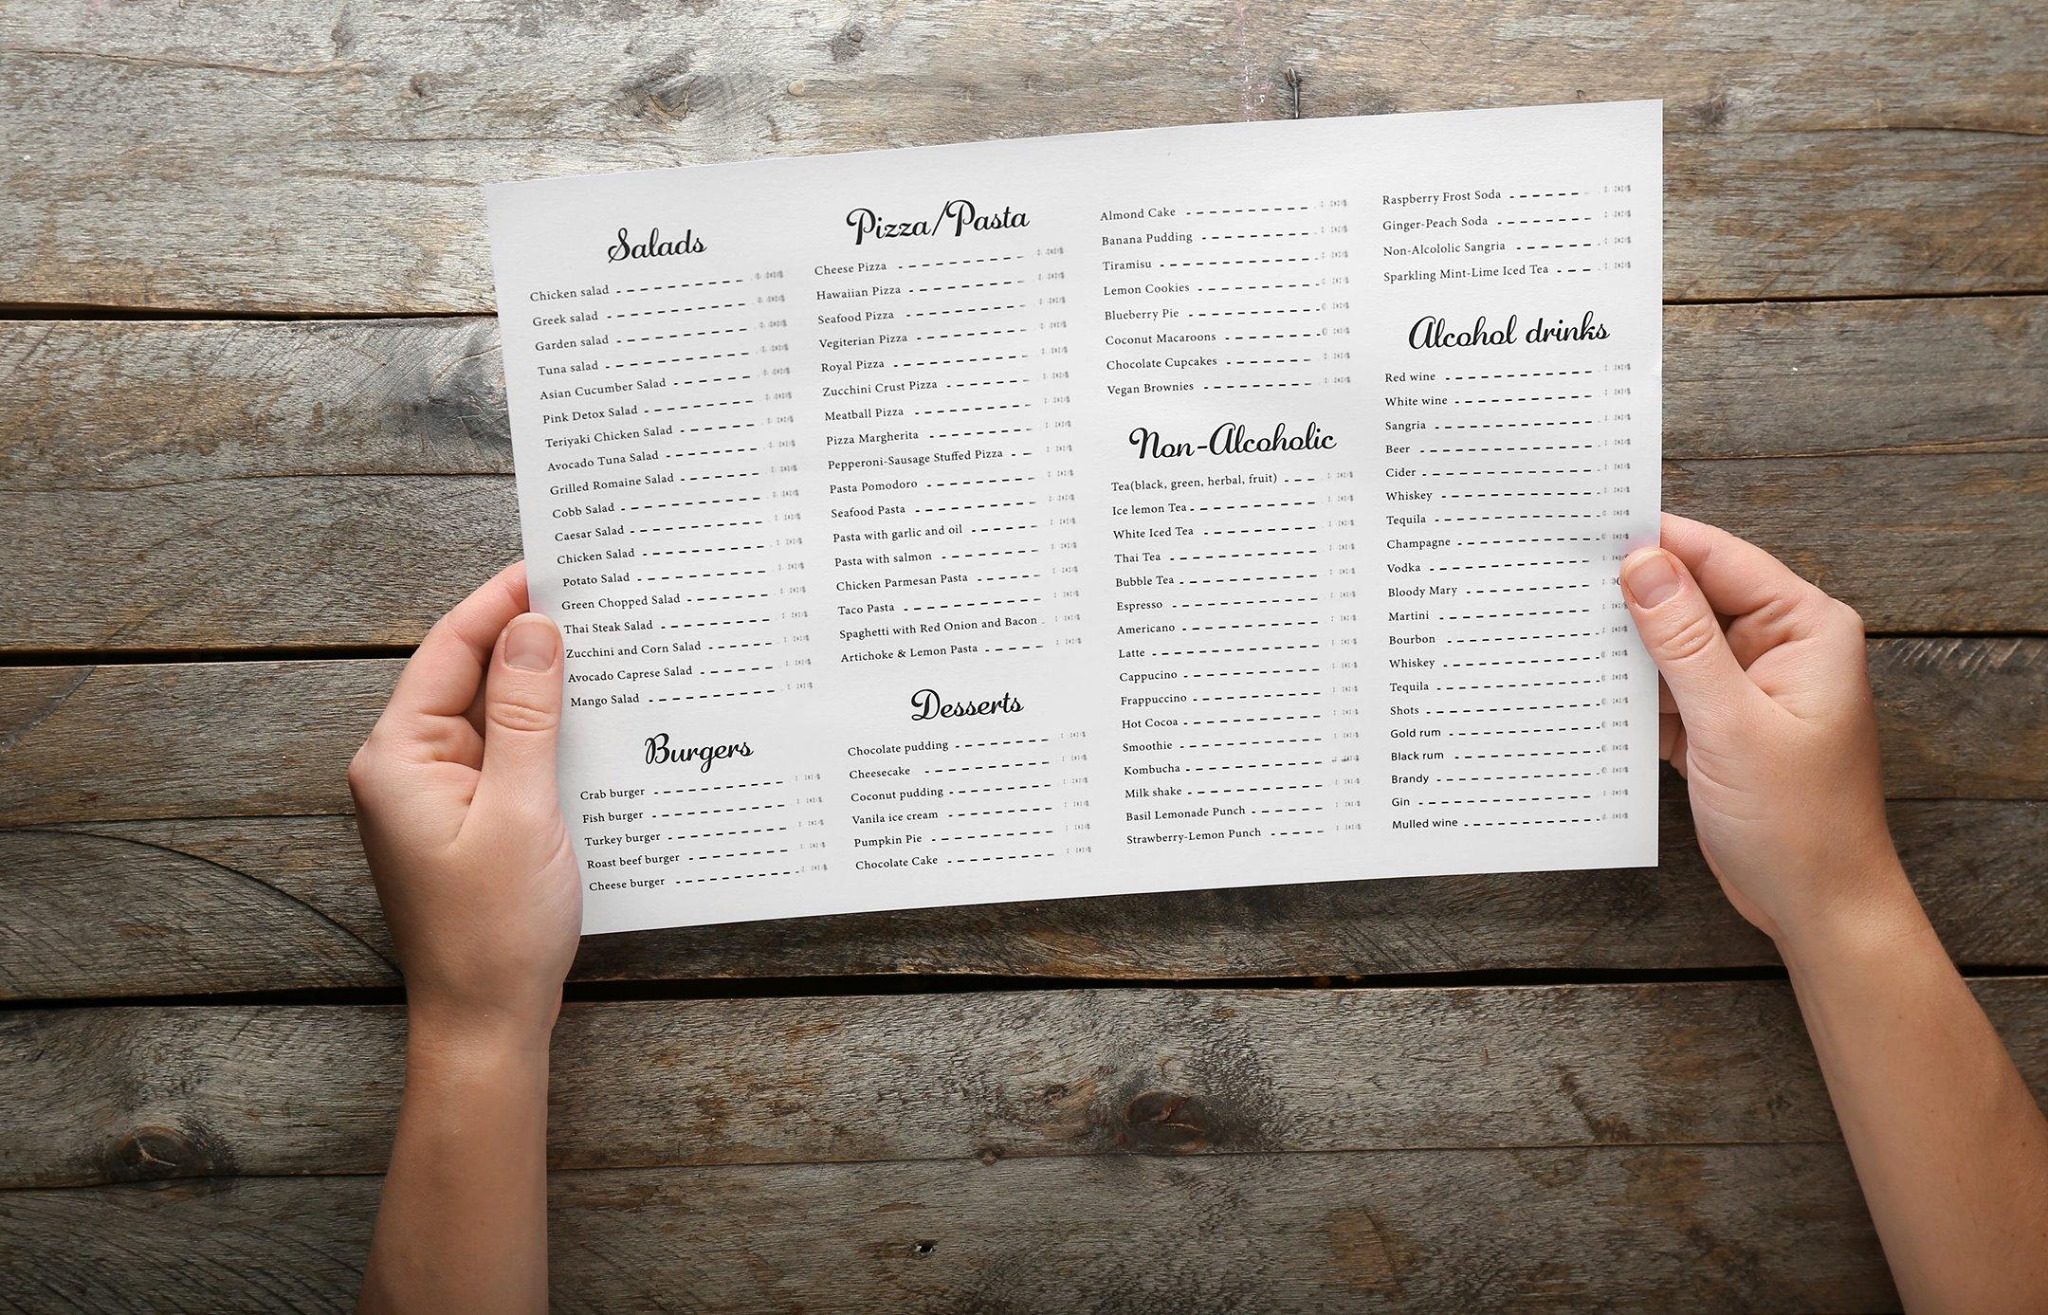 Salads
Chicken salad
Greek salad
Garden salad
Tuna salad
Asian Cucumber Salad
Pink Detox Salad
Teriyaki Chicken Salad
Avocado Tuna Salad
Grilled Romaine Salad
Cobb Salad
Caesar Salad
Chicken Salad
Potato Salad
Green Chopped Salad
Thai Steak Salad
Zucchini and Corn Salad
Avocado Caprese Salad
Mango Salad
Burgers
Crab burger
Fish burger
Turkey burger
Roast beef burger
Cheese burger
Pizza/Pasta
Cheese Pizza
Hawaiian Pizza
Seafood Pizza
Vegiterian Pizza
Royal Pizza
Zucchini Crust Pizza
Meatball Pizza
Pizza Margherita
Pepperoni-Sausage Stuffed Pizza
Pasta Pomodoro
Seafood Pasta
Pasta with garlic and oil
Pasta with salmon
Chicken Parmesan Pasta
Taco Pasta
Spaghetti with Red Onion and Bacon
Artichoke & Lemon Pasta
Desserts
Chocolate pudding
Cheesecake
Coconut pudding
Vanila ice cream
Pumpkin Pie
Chocolate Cake
Almond Cake
Banana Pudding
Tiramisu
Lemon Cookies
Blueberry Pie
Coconut Macaroons
Chocolate Cupcakes
Vegan Brownies
Non-Alcoholic
Tea(black, green, herbal, fruit)
Ice lemon Tea
White Iced Tea
Thai Tea
Bubble Tea
Espresso
Americano
Latte
Cappucino
Frappuccino
Hot Cocoa
Smoothie
Kombucha
Milk shake
Basil Lemonade Punch
Strawberry-Lemon Punch
Raspberry Frost Soda
Ginger-Peach Soda
Non-Alcololic Sangria
Sparkling Mint-Lime Iced Tea
Alcohol drinks
Red wine
White wine
Sangria
Beer
Cider
Whiskey
Tequila
Champagne
Vodka
Bloody Mary
Martini
Bourbon
Whiskey
Tequila
Shots
Gold rum
Black rum
Brandy
Gin
Mulled wine